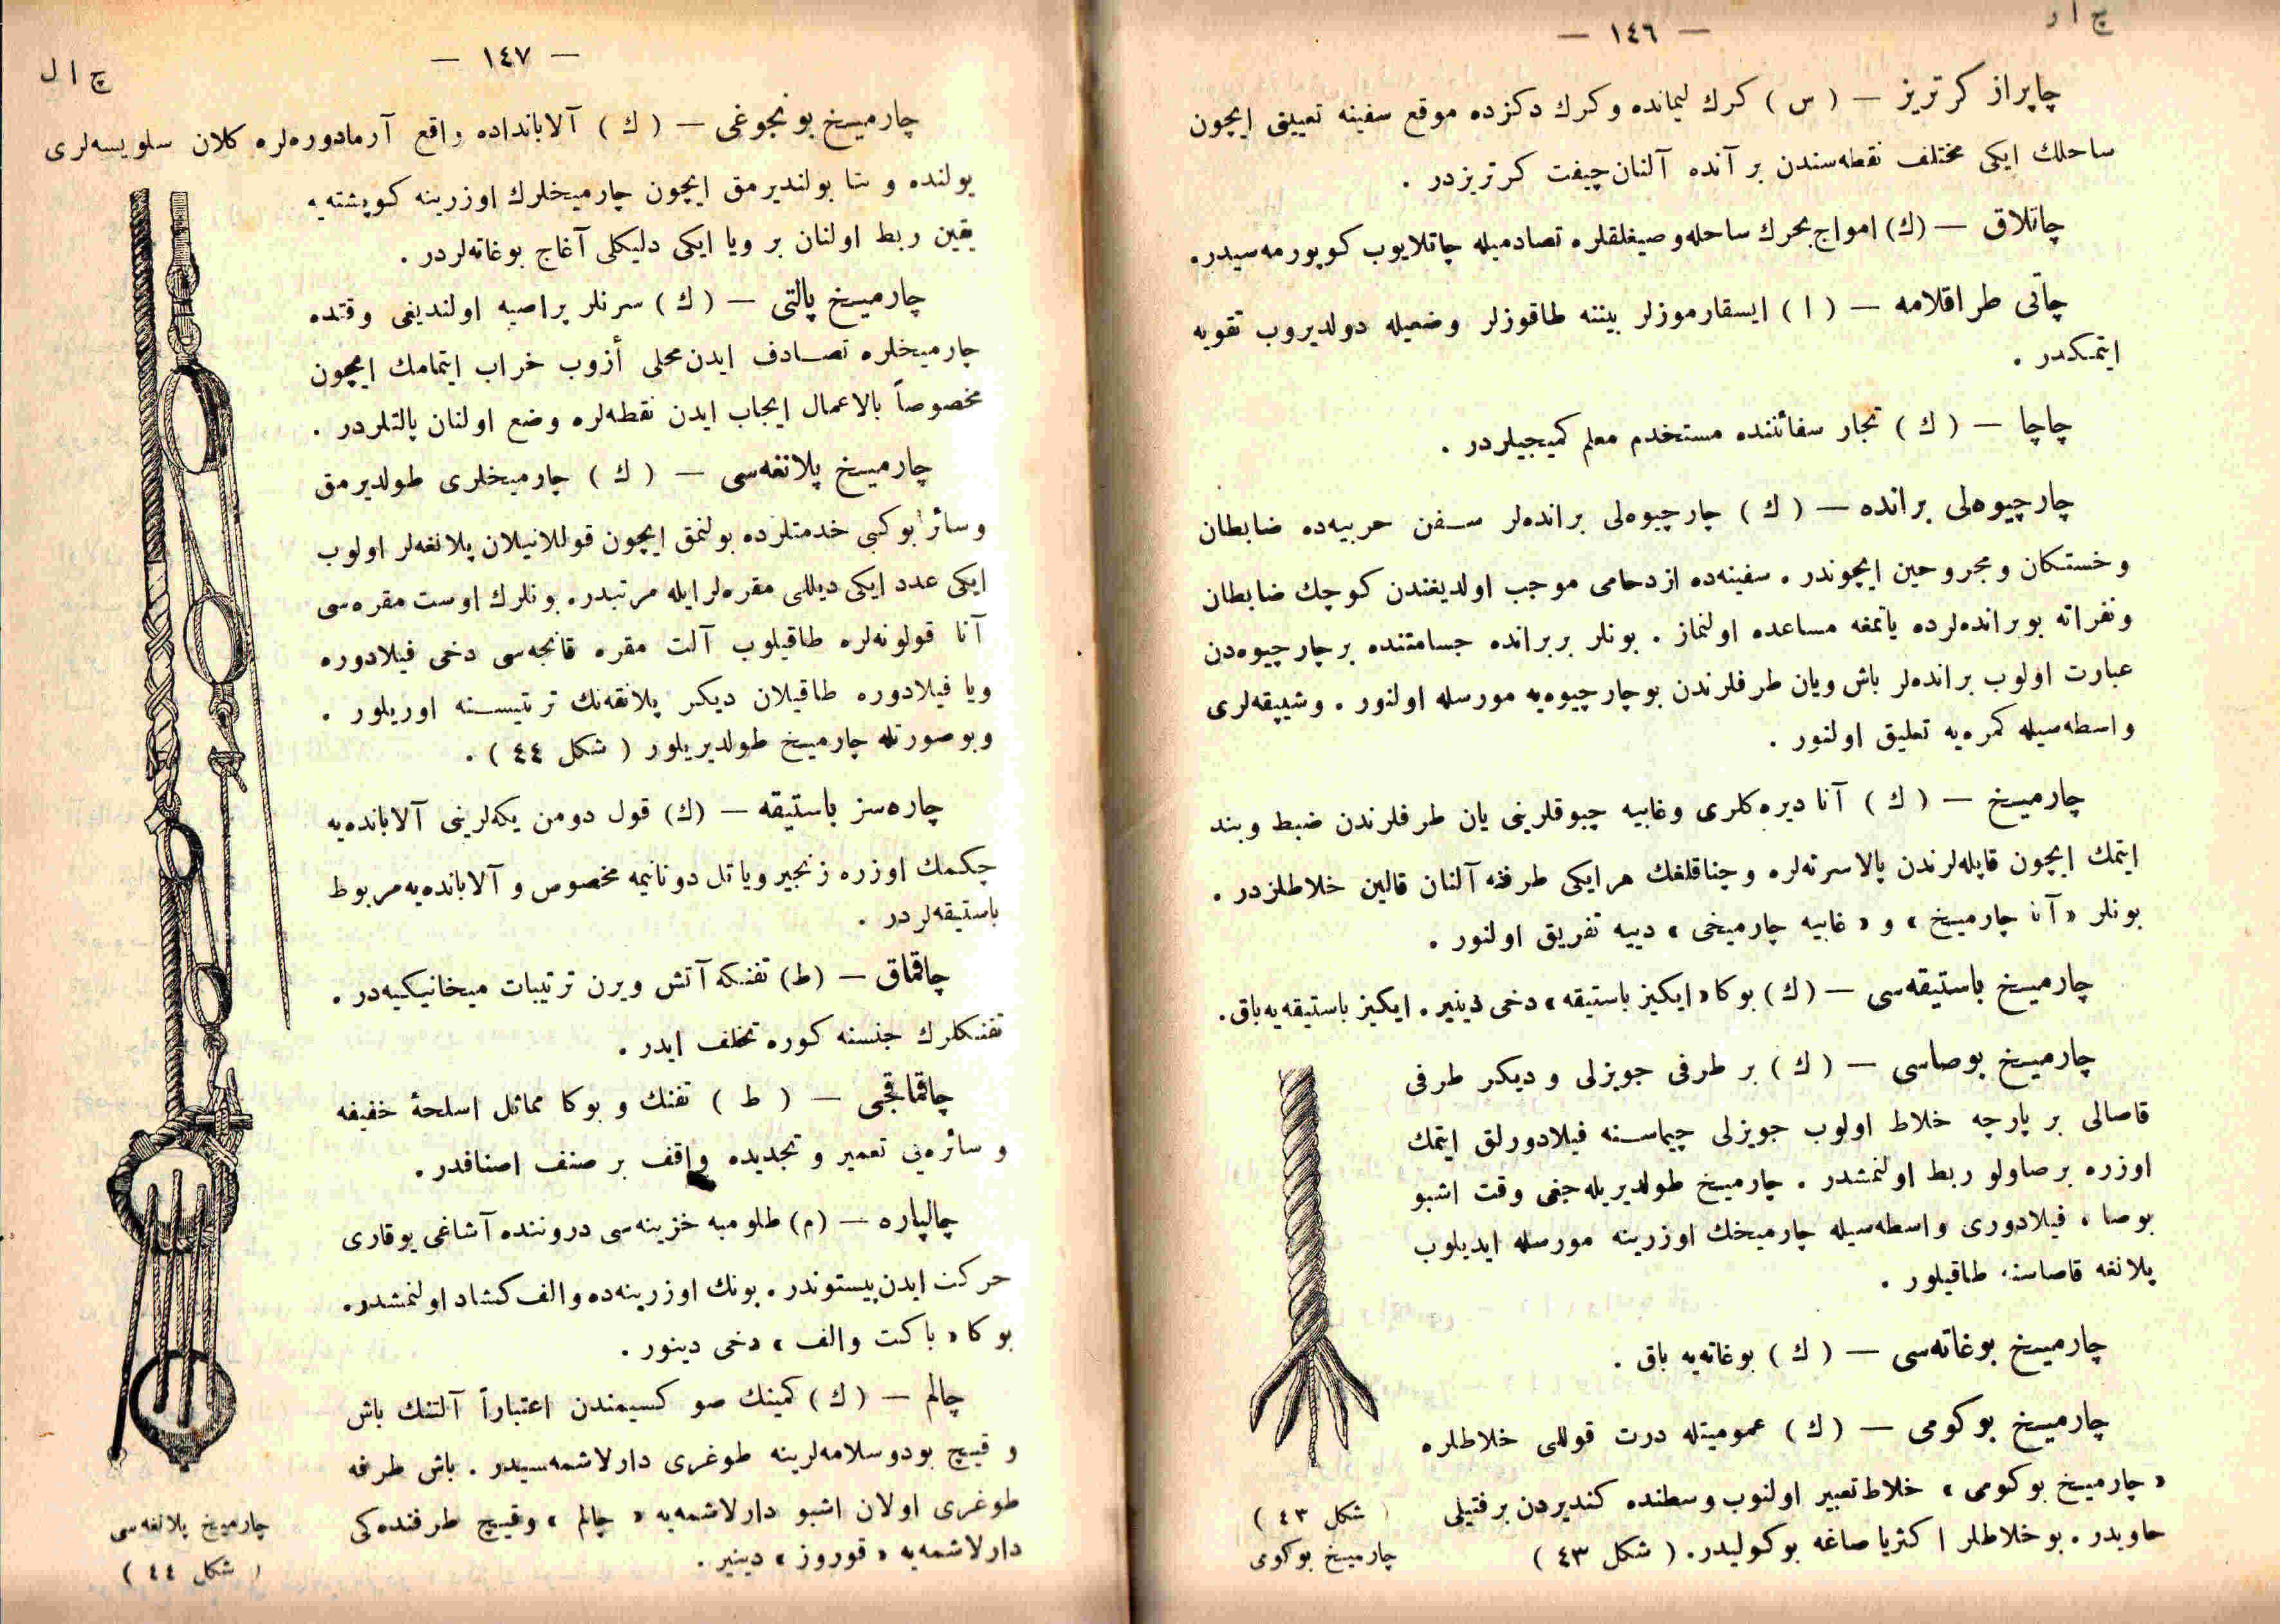 چ ا ر
— ١٤٦ —
چاپراز كرتريز — ( س ) كرك ليمانده وكرك دكزده موقع سفينه تعيينى ايچون
ساحلك ايكى مختلف نقطه‌سندن بر آنده آلنان چيفت كرتريزدر .
چاتلاق — (ك) امواج بحرك ساحله وصيغلقلره تصادميله چاتلايوب كوپورمه‌سيدر.
چاتى طراقلامه — ( ا ) ايسقارموزلر بيننه طاقوزلر وضعيله دولديروب تقويه
ايتمكدر .
چاچا — ( ك ) تجار سفائننده مستخدم معلم كميجيلردر .
چارچيوه‌لى برانده — ( ك ) چارچيوه‌لى برانده‌لر سفن حربيه‌ده ضابطان
وخستكان ومجروحين ايچوندر . سفينه‌ده ازدحامى موجب اولديغندن كوچك ضابطان
ونفراته بوبرانده‌لرده ياتمغه مساعده اولنماز . بونلر بربرانده جسامتنده برچارچيوه‌دن
عبارت اولوب برانده‌لر باش ويان طرفلرندن بوچارچيوه‌يه مورسله اولنور . وشيپقه‌لرى
واسطه‌سيله كمره‌يه تعليق اولنور .
چارميخ — ( ك ) آنا ديره‌كلرى وغابيه چبوقلرينى يان طرفلرندن ضبط وبند
ايتمك ايچون قاپله‌لرندن پالاسرته‌لره وچناقلغك هرايكى طرفنه آلنان قالين خلاطلردر .
بونلر « آنا چارميخ » و « غابيه چارميخى » دييه تفريق اولنور .
چارميخ باستيقه‌سى — (ك) بوكا « ايكيز باستيقه » دخى دينير . ايكيز باستيقه‌يه باق.
چارميخ بوصاسى — ( ك ) بر طرفى جويزلى و ديكر طرفى
قاصالى بر پارچه خلاط اولوب جويزلى چيماسنه فيلادورلق ايتمك
اوزره برصاولو ربط اولنمشدر . چارميخ طولديريله‌جغى وقت اشبو
بوصا ، فيلادورى واسطه‌سيله چارميخك اوزرينه مورسله ايديلوب
پلانغه قاصاسنه طاقيلور .
چارميخ بوغاته‌سى — ( ك ) بوغاته‌يه باق .
چارميخ بوكومى — ( ك ) عموميتله درت قوللى خلاطلره
« چارميخ بوكومى » خلاط تعبير اولنوب وسطنده كنديردن برفتيلى
حاويدر . بوخلاطلر اكثريا صاغه بوكوليدر. ( شكل ٤٣ )
( شكل ٤٣ )
چارميخ بوكومى
چ ا ل
— ١٤٧ —
چارميخ بونجوغى — ( ك ) آلاباندا‌ده واقع آرمادوره‌لره كلان سلويسه‌لرى
يولنده و ستا بولنديرمق ايچون چارميخلرك اوزرينه كوپشته‌يه
يقين ربط اولنان بر ويا ايكى دليكلى آغاج بوغاته‌لردر .
چارميخ پالتى — ( ك ) سرنلر پراصيه اولنديغى وقتده
چارميخلره تصادف ايدن محلى أزوب خراب ايتمامك ايچون
مخصوصاً بالاعمال ايجاب ايدن نقطه‌لره وضع اولنان پالتلردر .
چارميخ پلانغه‌سى — ( ك ) چارميخلرى طولديرمق
وسائر بوكبى خدمتلرده بولنمق ايچون قوللانيلان پلانغه‌لر اولوب
ايكى عدد ايكى ديللى مقره‌لرايله مرتبدر. بونلرك اوست مقره‌سى
آنا قولونه‌لره طاقيلوب آلت مقره قانجه‌سى دخى فيلادوره
ويا فيلادوره طاقيلان ديكر پلانقه‌نك ترتيبسنه اوريلور .
وبوصورتله چارميخ طولديريلور ( شكل ٤٤ ) .
چاره‌سز باستيقه — (ك) قول دومن يكه‌لرينى آلابانده‌يه
چكمك اوزره زنجير وياتل دونانيمه مخصوص و آلابانده‌يه مربوط
باستيقه‌لردر .
چاقماق — (ط) تفنكه آتش ويرن ترتيبات ميخانيكيه‌در .
تفنكلرك جنسنه كوره تخلف ايدر .
چاقماقجى — ( ط ) تفنك و بوكا مماثل اسلحهٔ خفيفه
و سائره‌يى تعمير و تجديده واقف بر صنف اصنافدر .
چالپاره — (م) طلومبه خزينه‌سى دروننده آشاغى يوقارى
حركت ايدن بيستوندر . بونك اوزرينه‌ده والف كشاد اولنمشدر.
بوكا « باكت والف » دخى دينور .
چالم — ( ك ) كمينك صو كسيمندن اعتباراً آلتنك باش
و قيچ بودوسلامه‌لرينه طوغرى دارلاشمه‌سيدر . باش طرفه
طوغرى اولان اشبو دارلاشمه‌يه « چالم » وقيچ طرفنده‌كى
دارلاشمه‌يه « قوروز » دينير .
چارميخ پلانغه‌سى
( شكل ٤٤ )